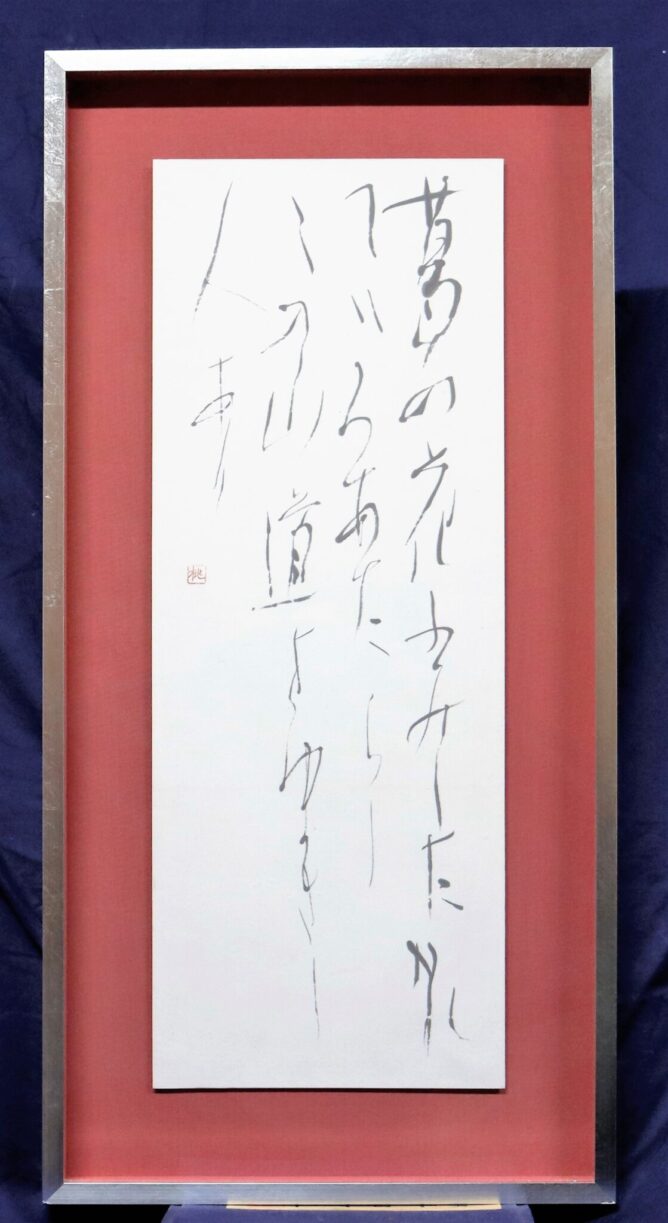 葛の花ふみしたかれ
ていろあたらし
この山道をゆきし
人あり